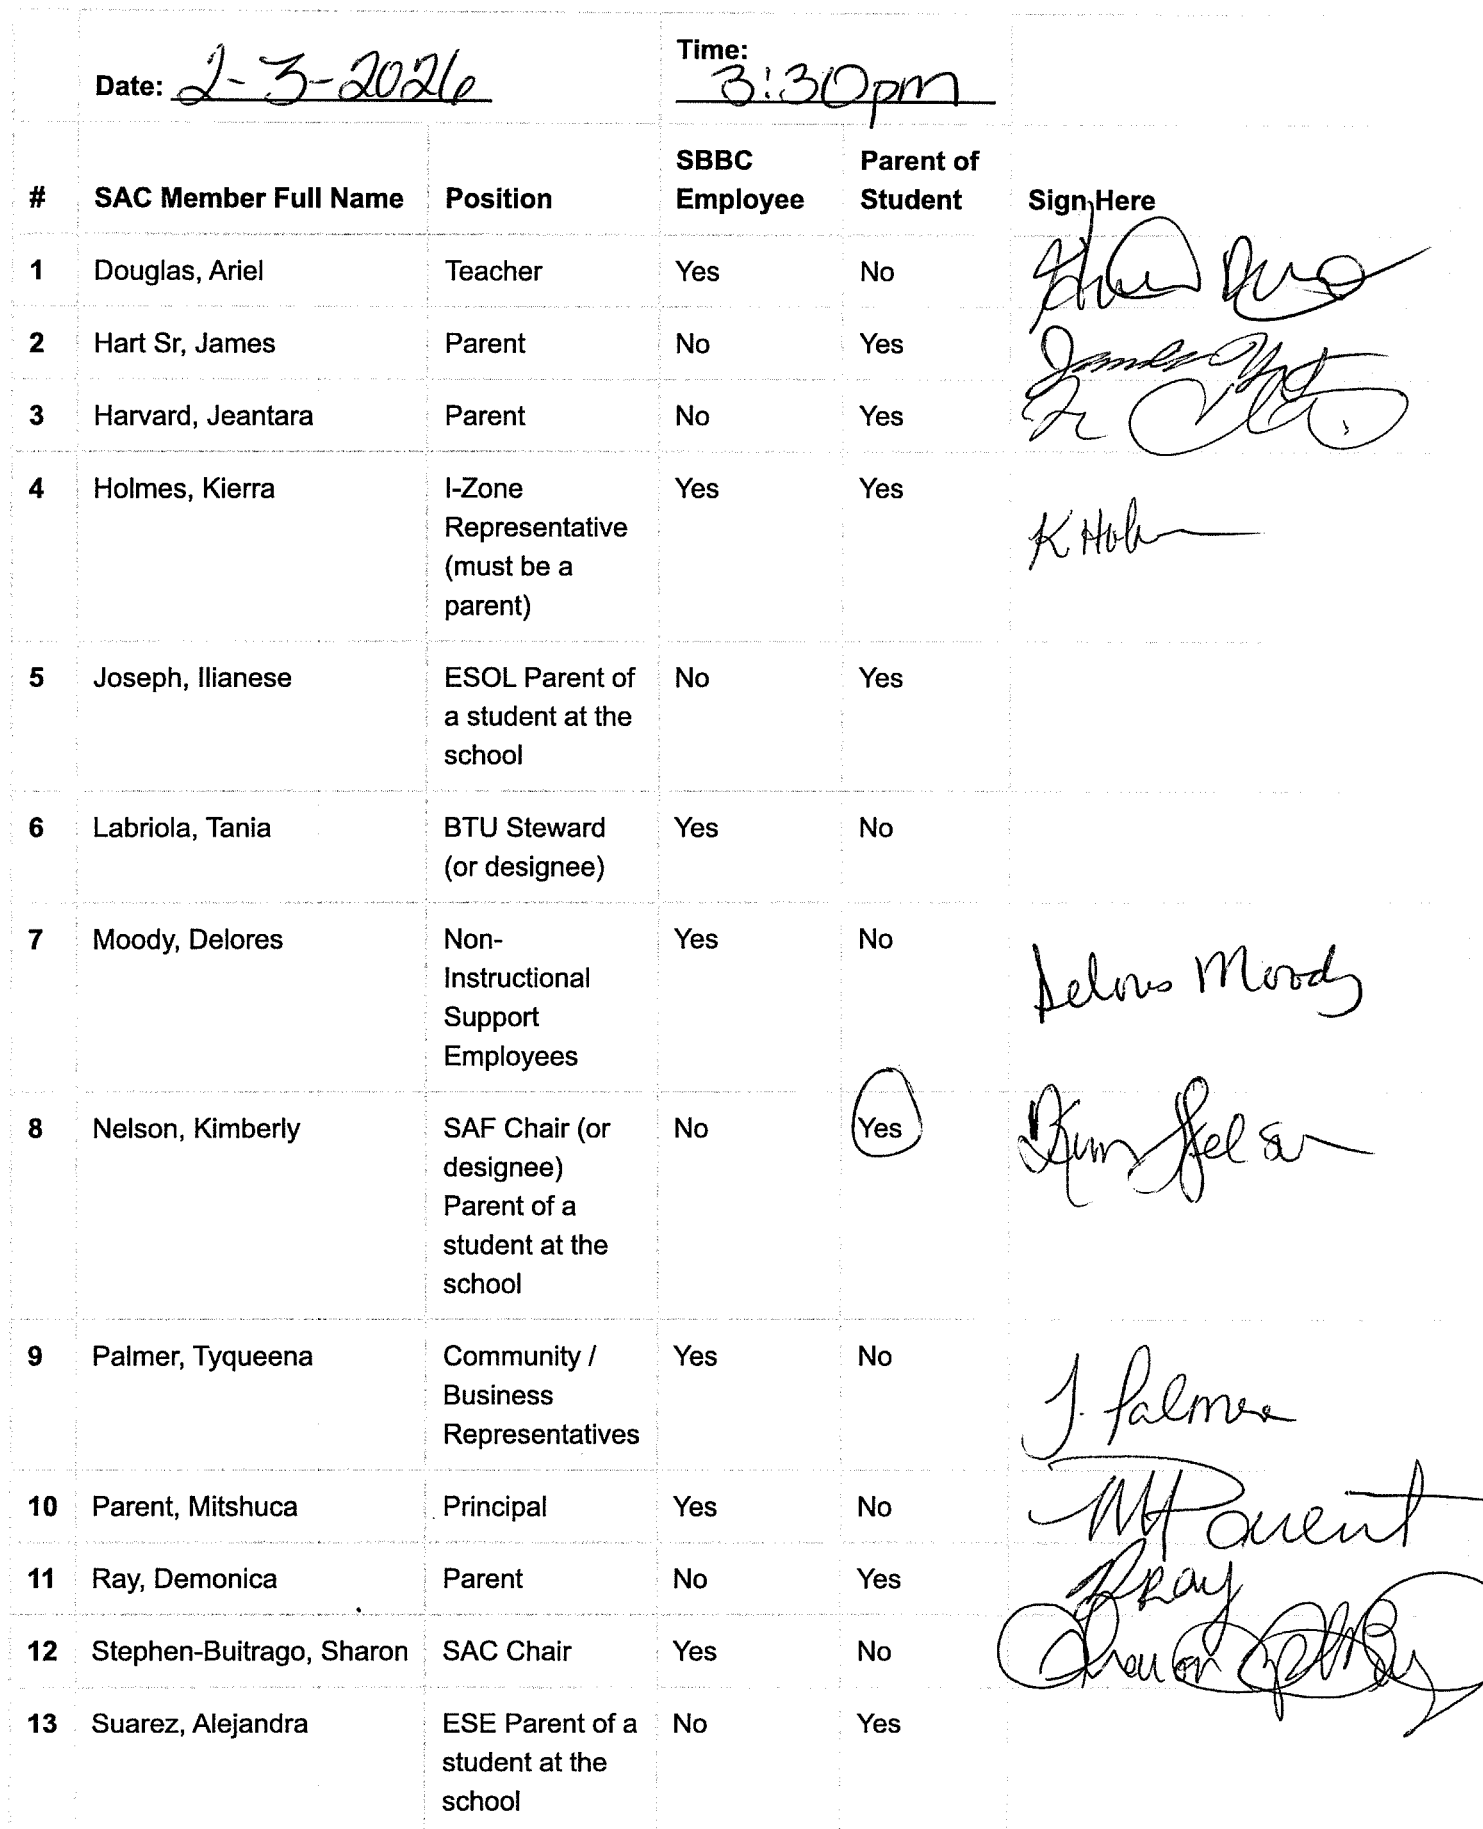 Date: 2-3-2026 Time: 3:30pm
# SAC Member Full Name Position SBBC Employee Parent of Student Sign Here
1 Douglas, Ariel Teacher Yes No
2 Hart Sr, James Parent No Yes James Hart
3 Harvard, Jeantara Parent No Yes
4 Holmes, Kierra I-Zone Yes Yes
Representative
(must be a
parent)
K Hol
5 Joseph, Ilianese ESOL Parent of No Yes
a student at the
school
6 Labriola, Tania BTU Steward Yes No
(or designee)
7 Moody, Delores Non- Yes No
Instructional
Support
Employees
Delores Moody
8 Nelson, Kimberly SAF Chair (or No Yes
designee)
Parent of a
student at the
school
Kim Nelson
9 Palmer, Tyqueena Community / Yes No
Business
Representatives
T. Palmer
10 Parent, Mitshuca Principal Yes No MParent
11 Ray, Demonica Parent No Yes DRay
12 Stephen-Buitrago, Sharon SAC Chair Yes No Sharon
13 Suarez, Alejandra ESE Parent of a No Yes
student at the
school